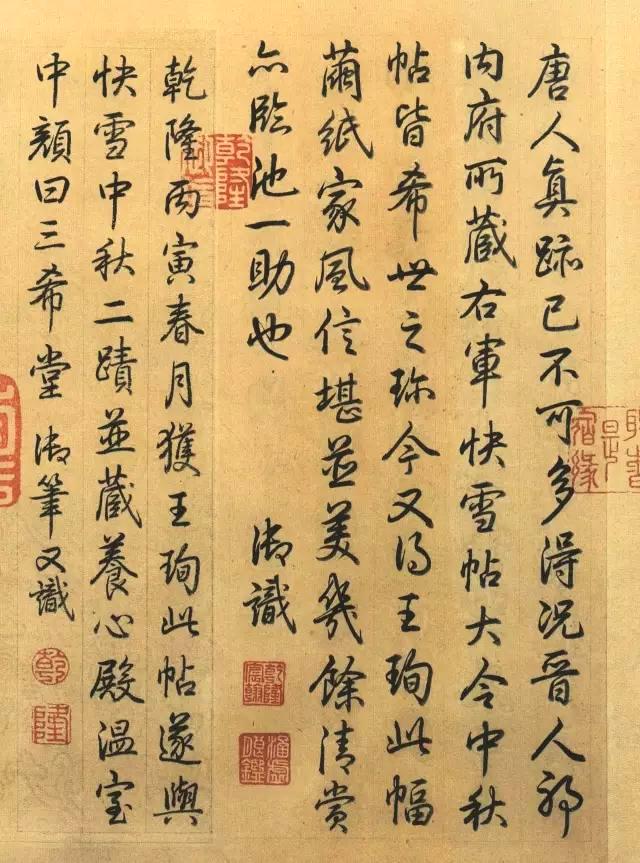 唐人真跡已不可多得况晉人耶
内府所藏右軍快雪帖大令中秋
帖皆希世之珎今又得王珣此幅
繭紙家風信堪並美幾餘清賞
亦臨池一助也 御識
乾隆丙寅春月獲王珣此帖遂與
快雪中秋二蹟並藏養心殿温室
中顔曰三希堂 御筆又識
乾隆
乾
隆